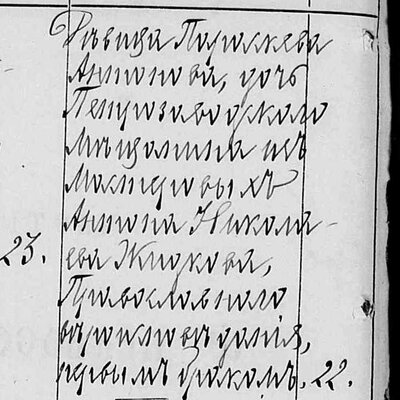 Дѣвица Параскева
Антонова, дочь
Петрозаводскаго
мѣщанина изъ
мастеровыхъ
Антона Никола-
23. ева Жидкова,
Православнаго
вѣроисповѣданія,
первымъ бракомъ. 22.